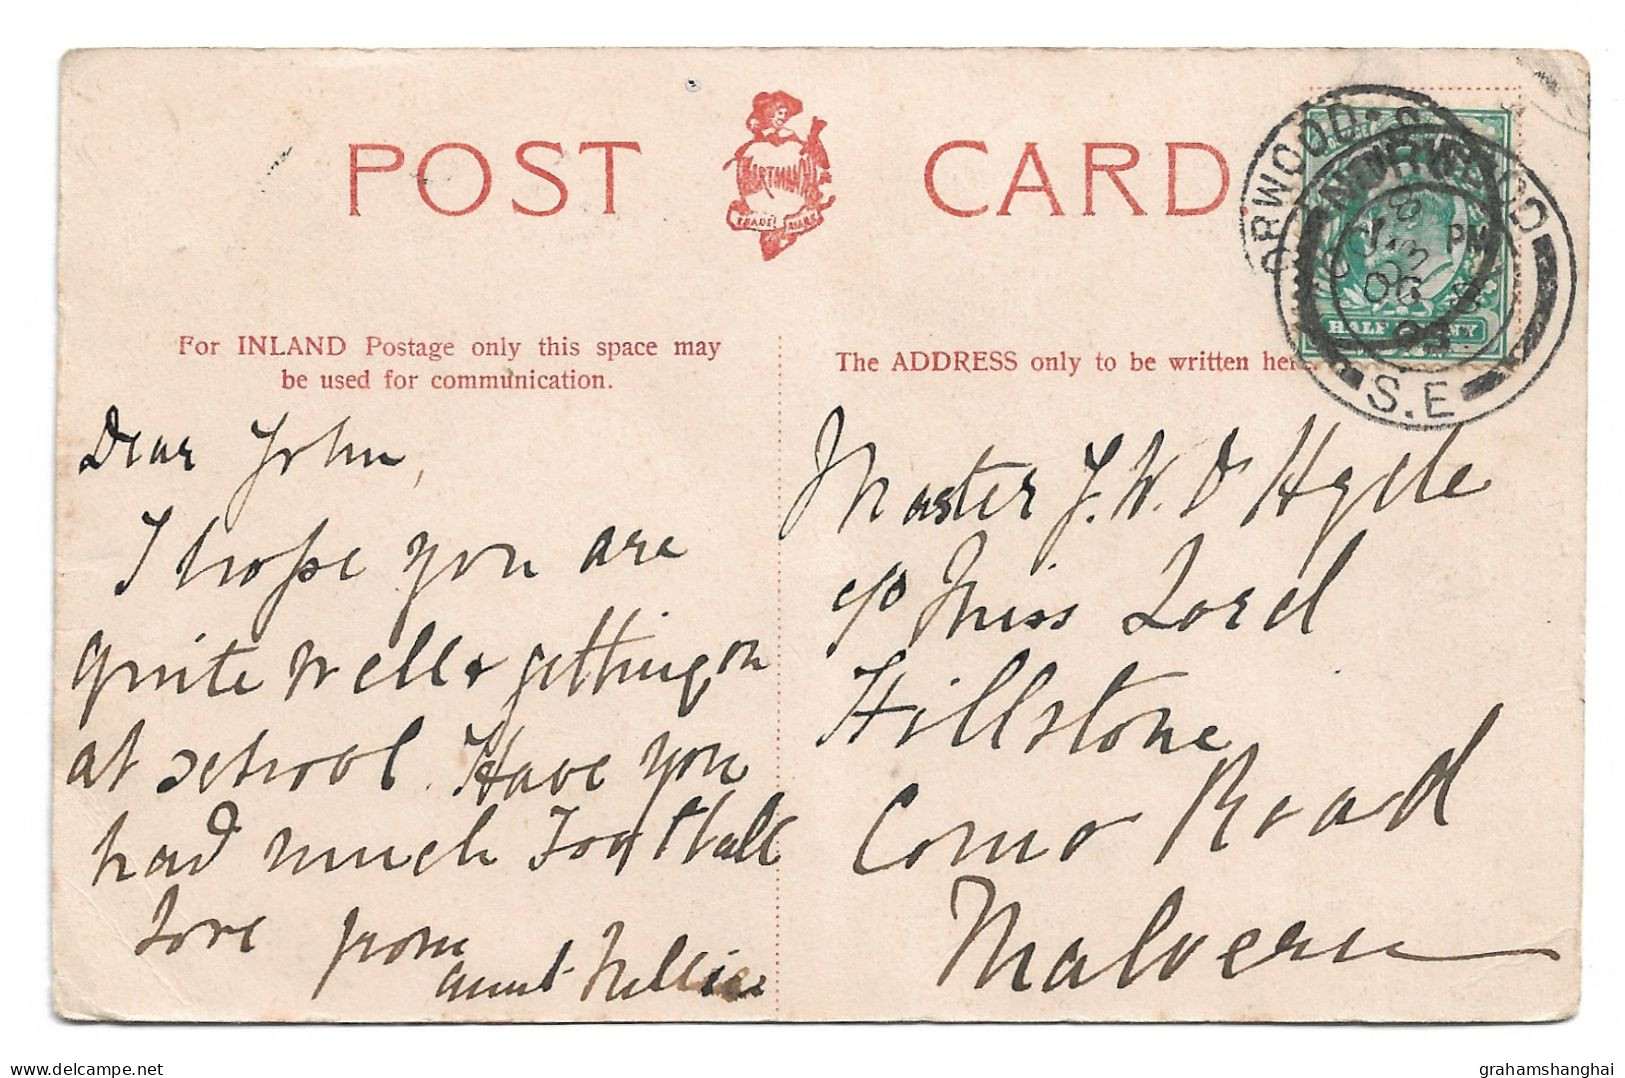 POST CARD
HARTMANN
TRADE MARK
For INLAND Postage only this space may
be used for communication.
The ADDRESS only to be written here.
HALF PENNY
NORWOOD
8 PM
06
S.E
Dear John,
I hope you are
quite well & getting on
at school. Have you
had much Football
Love from
Aunt Nellie
Master J. W. D Hyde
c/o Miss Lord
Hillstone
Como Road
Malvern
delcampe.net
grahamshanghai